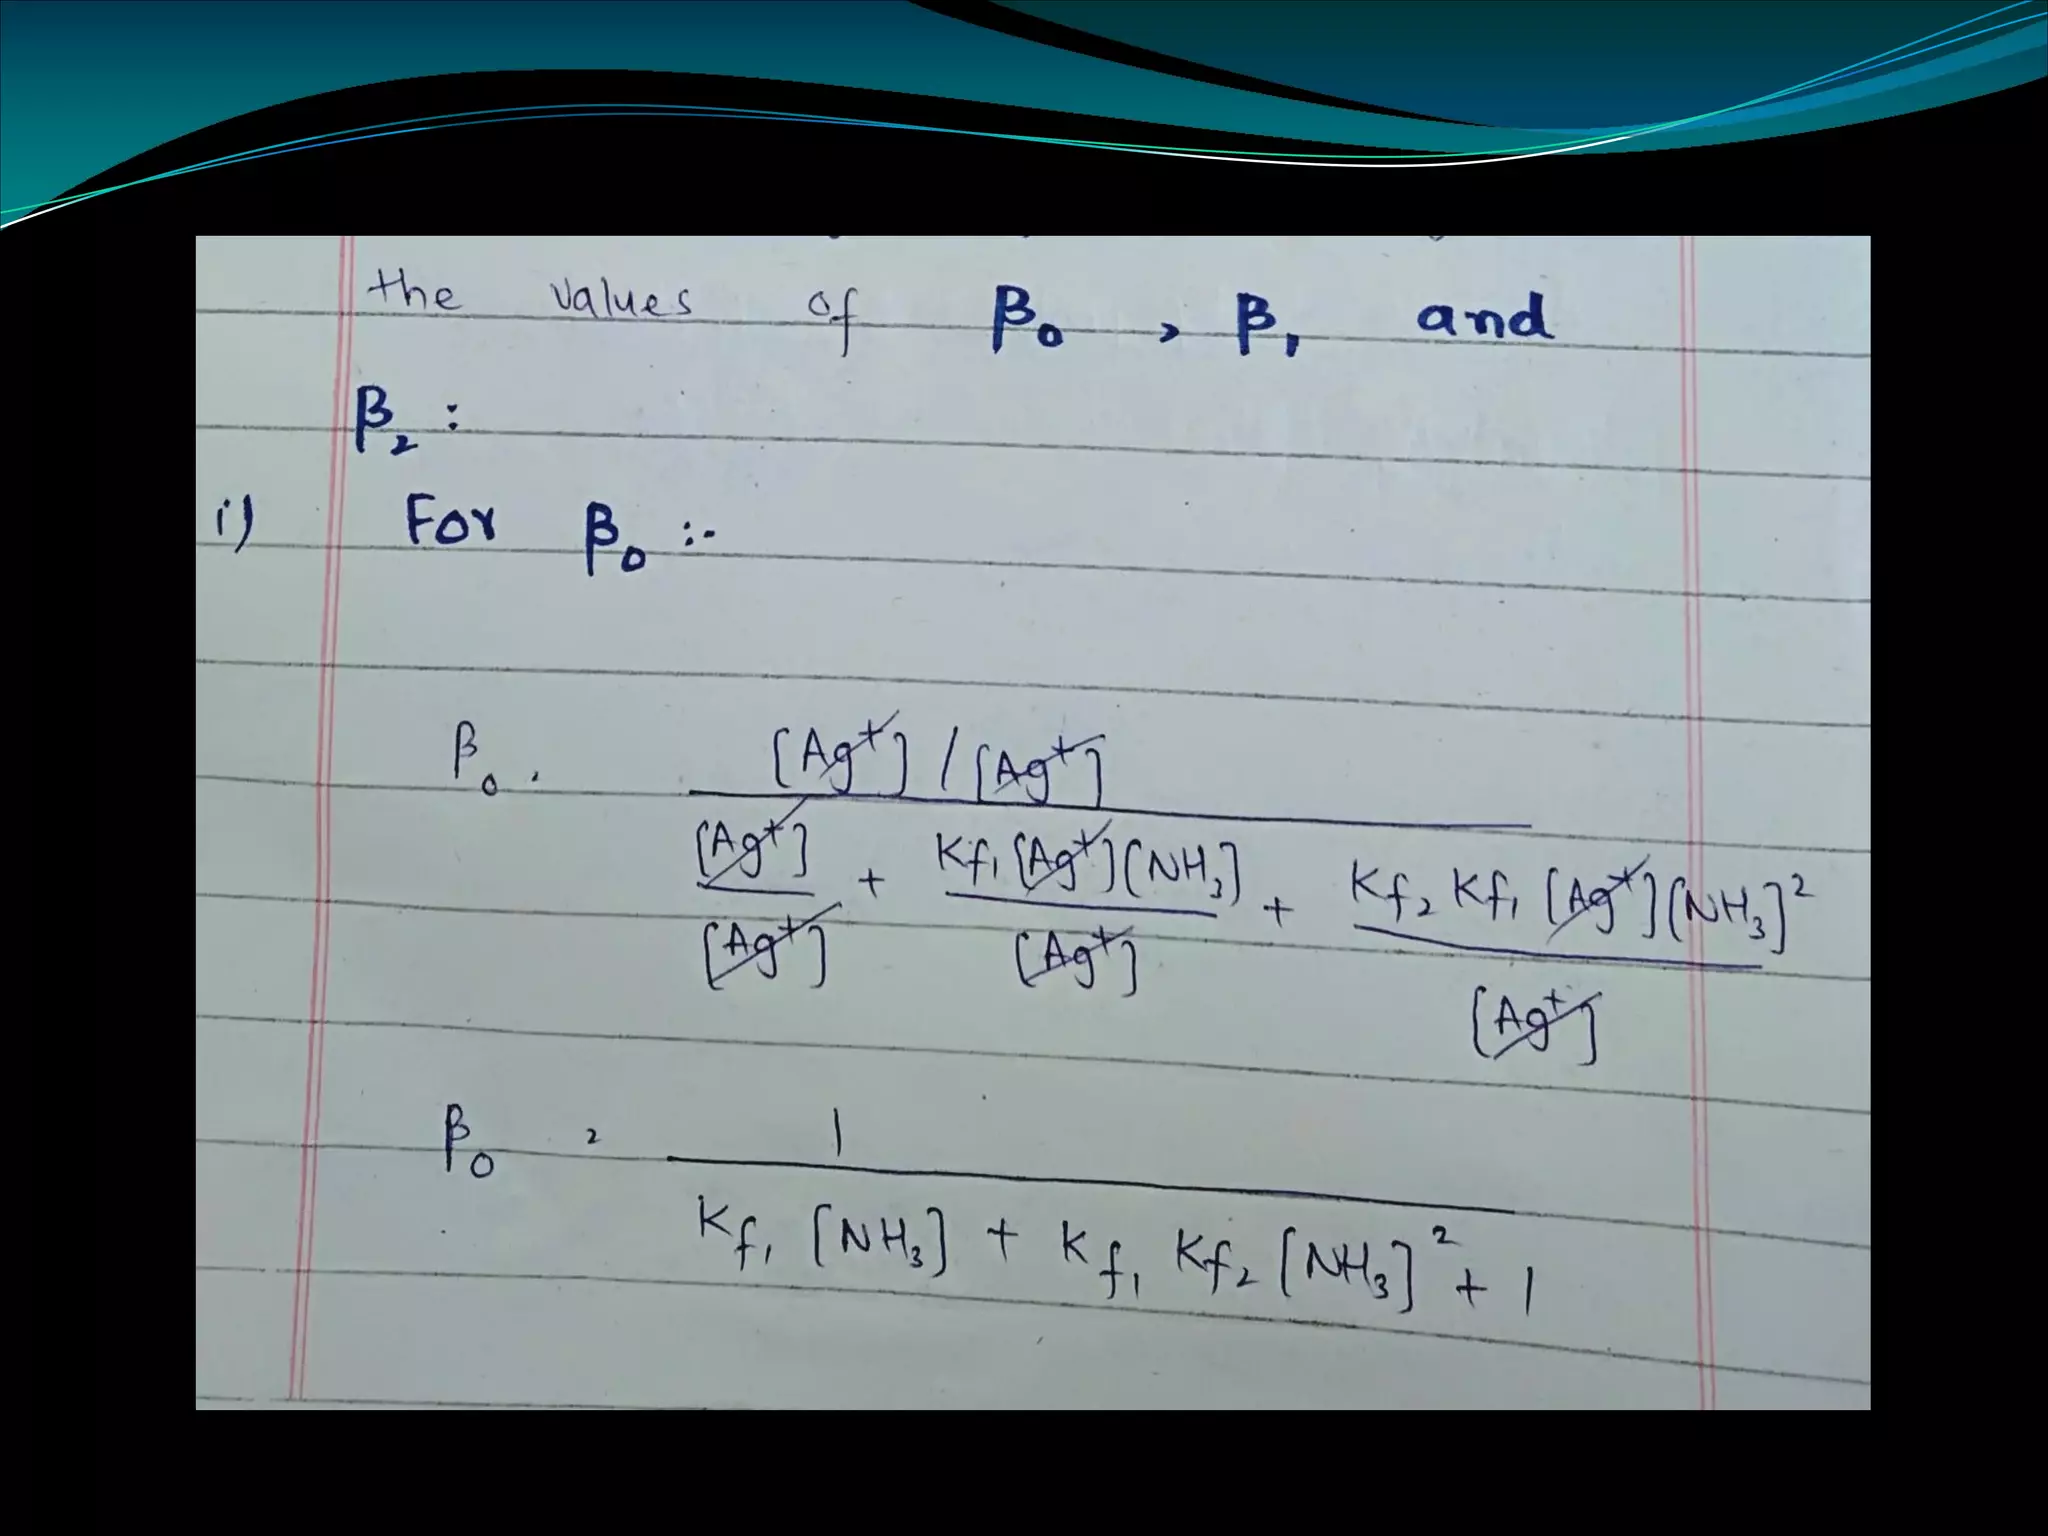 the values of β₀ , β₁ and
β₂ :
i) For β₀ :-
β₀ . [Ag⁺] / [Ag⁺]
[Ag⁺] + Kf₁ [Ag⁺] [NH₃] + Kf₂ Kf₁ [Ag⁺] [NH₃]²
[Ag⁺] [Ag⁺] [Ag⁺]
β₀ = 1
Kf₁ [NH₃] + Kf₁ Kf₂ [NH₃]² + 1